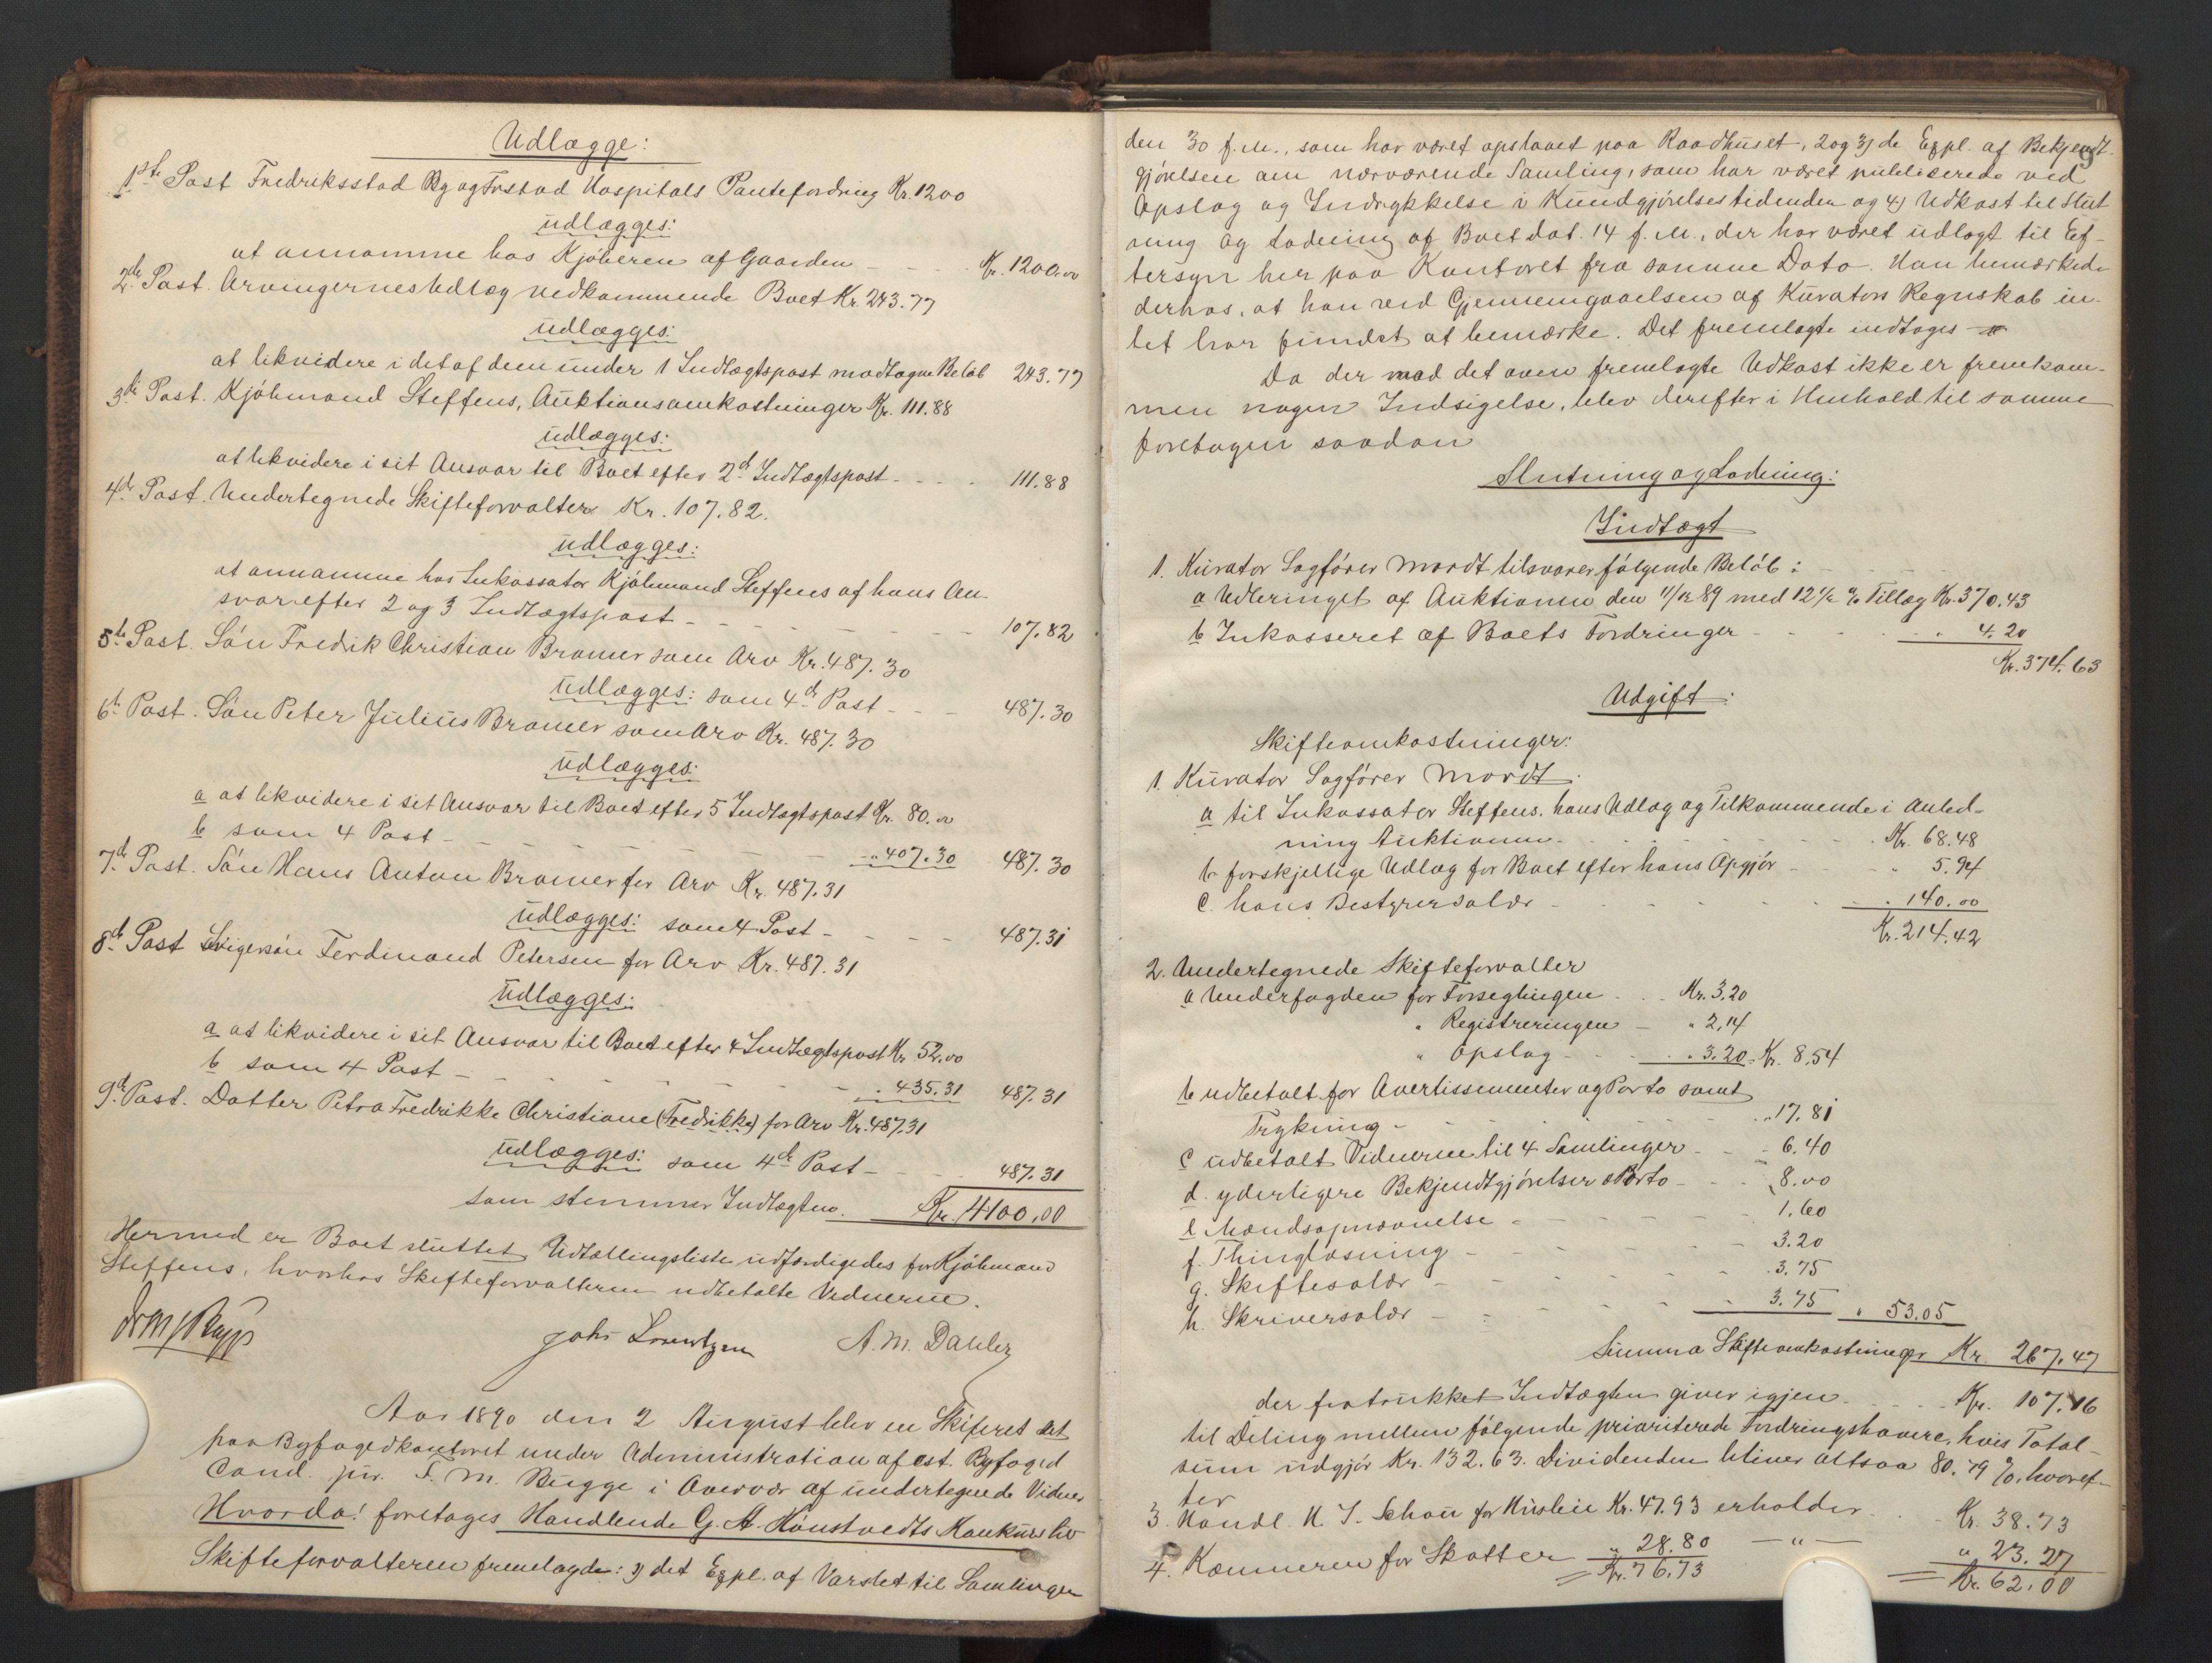 Udlægge:
1ste Post Fredriksstad By og Forstad Hospitals Pantefordring Kr. 1200
udlægges:
at annamme hos Kjøberen af Gaarden - - - - Kr. 1200.00
2de Post. Arvingernes Udlæg vedkommende Boet Kr. 243.77
udlægges:
at likvidere i det af dem under 1 Indtægtspost modtagne Beløb 243.77
3die Post. Kjøbmand Steffens, Auktionsomkostninger Kr. 111.88
udlægges:
at likvidere i sit Ansvar til Boet efter 2d Indtægtspost - - - - 111.88
4de Post. Undertegnede Skifteforvalter Kr. 107.82.
udlægges:
at annamme hos Inkassator Kjøbmand Steffens af hans An-
svar efter 2 og 3 Indtægtspost - - - - 107.82
5te Post. Søn Fredrik Christian Bramer som Arv Kr. 487.30
udlægges: som 4de Post - - 487.30
6te Post. Søn Peter Julius Bramer som Arv Kr. 487.30
udlægges:
a at likvidere i sit Ansvar til Boet efter 5 Indtægtspost Kr. 80.00
b som 4 Post - - - - " 407.30 487.30
7de Post. Søn Hans Anton Bramer for Arv Kr. 487.31
udlægges: som 4 Post - - - - 487.31
8de Post Svigersøn Ferdinand Petersen for Arv Kr. 487.31
udlægges:
a at likvidere i sit Ansvar til Boet efter 4 Indtægtspost Kr. 52.00
b som 4 Post - - - - " 435.31 487.31
9de Post. Datter Petra Fredrikke Christiane (Fredrikke) for Arv Kr. 487.31
udlægges: som 4de Post - - - 487.31
som stemmer Indtægten. Kr. 4100.00
Hermed er Boet sluttet. Udtællingsliste udfærdigedes for Kjøbmand
Steffens, hvorhos Skifteforvalteren udbetalte Vidnerne.
Joh. Lorentzen A. M. Dahler
Aar 1890 den 2 August blev en Skifteret sat
paa Byfogedkontoret under Administration af cst. Byfoged
Cand. jur. F. M. Bugge i Overvær af undertegnede Vidner
Hvorda! foretoges Handlende G. A. Hönstvedts Konkursbo
Skifteforvalteren fremlagde: 1) det Expl. af Varslet til Samlingen
den 30 f. M., som har været opslaaet paa Raadhuset, 2 og 3) de Expl. af Bekjendt-
gjørelsen om nærværende Samling, som har været publicerede ved
Opslag og Indrykkelse i Kundgjørelsestidenden og 4) Udkast til Slut
ning og Lodning af Boet dat. 14 f. M., der har været udlagt til Ef-
tersyn her paa Kontoret fra samme Dato. Han bemærkede
derhos, at han ved Gjennemgaaelsen af Kurators Regnskab in-
tet har fundet at bemærke. Det fremlagte indtages
Da der mod det oven fremlagte Udkast ikke er fremkom-
men nogen Indsigelse, blev derefter i Henhold til samme
foretagen saadan
Slutning og Lodning:
Indtægt
1. Kurator Sagfører Mordt tilsvarer følgende Beløb:
a Udbringet af Auktionen den 11/12 89 med 12 1/2 % Tillæg Kr. 370.43
b Inkasseret af Boets Fordringer - - - - " 4.20
Kr. 374.63
Udgift:
Skifteomkostninger:
1. Kurator Sagfører Mordt.
a til Inkassator Steffens. hans Udlæg og Tilkommende i Anled-
ning Auktionen - - - - Kr. 68.48
b forskjellige Udlæg for Boet efter hans Opgjør - - " 5.94
c. hans Bestyrersalær - - - - " 140.00
Kr. 214.42
2. Undertegnede Skifteforvalter
a Underfogden for Forseglingen - - Kr. 3.20
" Registreringen - " 2.14
" Opslag - - - " 3.20 Kr. 8.54
b udbetalt for Avertissementer og Porto samt
Trykning - - - - " 17.81
c udbetalt Vidnerne til 4 Samlinger - - - 6.40
d. yderligere Bekjendtgjørelser o Porto - - - 8.00
e Mandsopnævnelse - - - - 1.60
f. Thinglæsning - - - - 3.20
g. Skiftesalær - - - - 3.75
h. Skriversalær - - - - 3.75 " 53.05
Summa Skifteomkostninger Kr. 267.47
der fratrukket Indtægten giver igjen - - - - Kr. 107.16
til Deling mellem følgende prioriterede Fordringshavere, hvis Total-
sum udgjør Kr. 132.63. Dividenden bliver altsaa 80.79 %, hvoref-
ter
3. Handl. H. J. Schou for Husleie Kr. 47.93 erholder - - Kr. 38.73
4. Kæmneren for Skatter " 28.80 - " - " 23.27
Kr. 76.73 Kr. 62.00